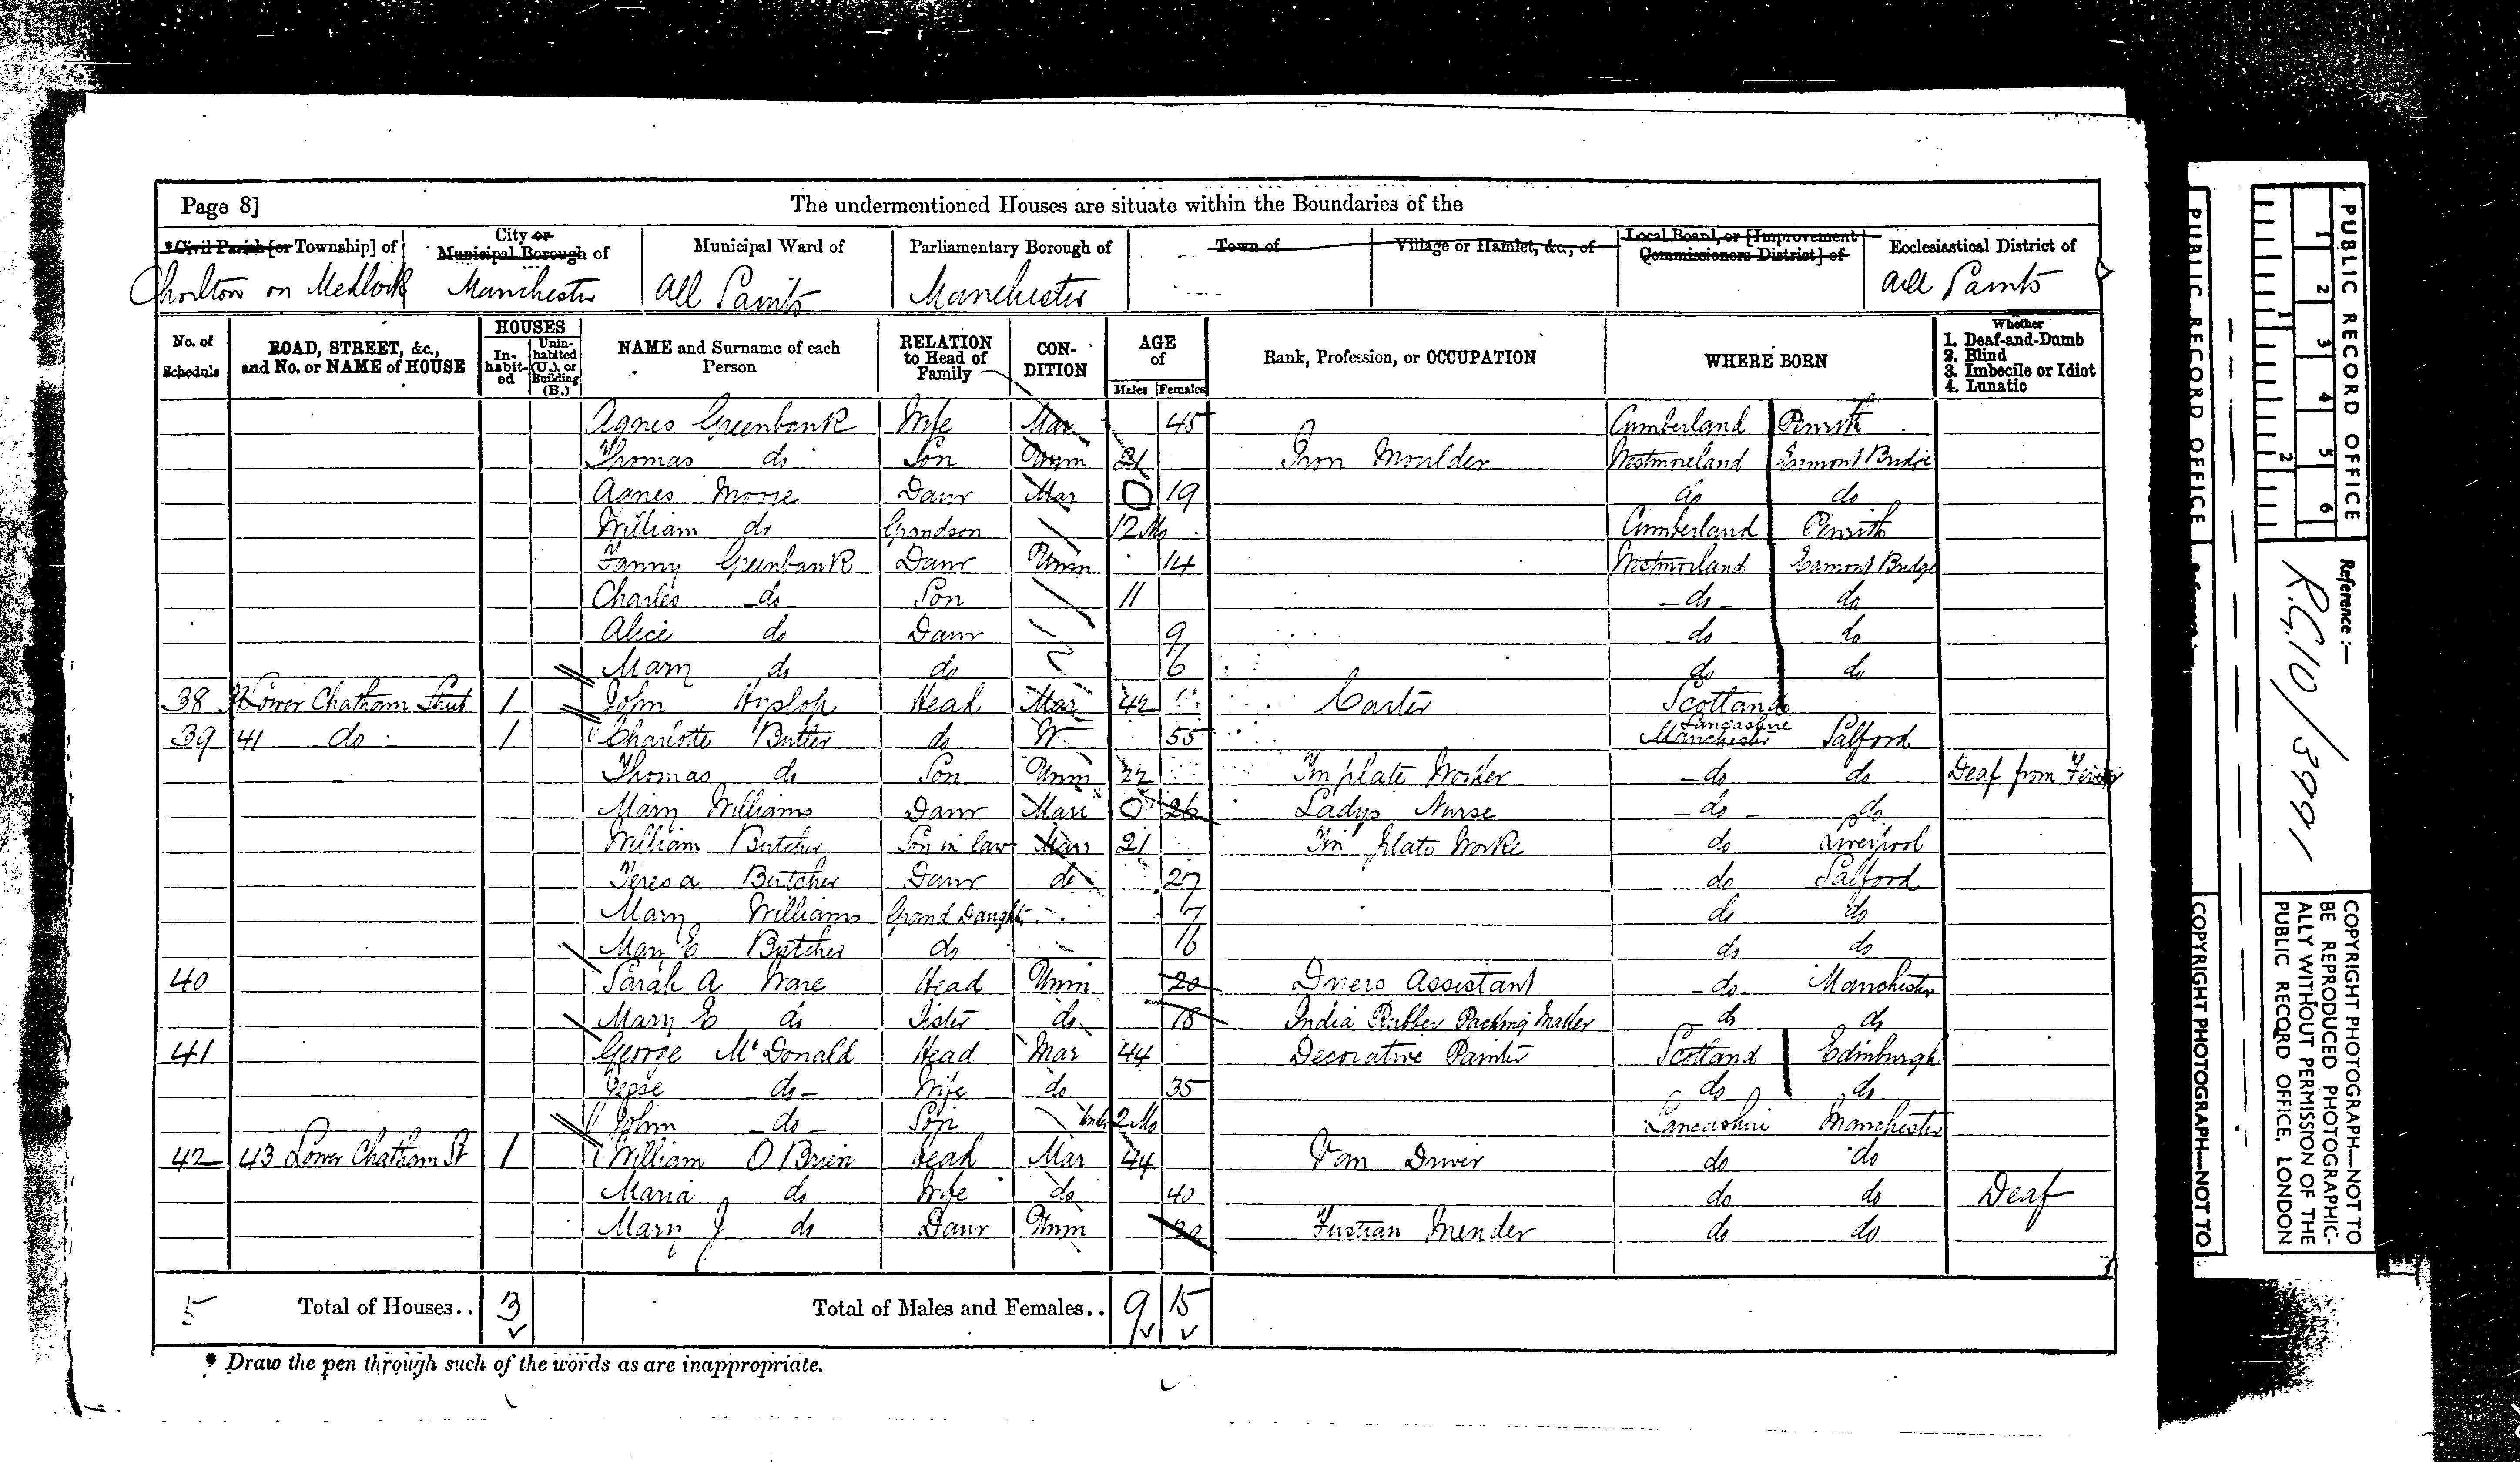 Page 8] The undermentioned Houses are situate within the Boundaries of the
* Civil Parish [or Township] of City or Municipal Borough of Municipal Ward of Parliamentary Borough of Town of Village or Hamlet, &c., of Local Board, or [Improvement Commissioners District] of Ecclesiastical District of
Chorlton on Medlock Manchester All Saints Manchester All Saints
No. of Schedule ROAD, STREET, &c., and No. or NAME of HOUSE HOUSES In-habit-ed Unin-habited (U.), or Building (B.) NAME and Surname of each Person RELATION to Head of Family CON-DITION AGE of Males Females Rank, Profession, or OCCUPATION WHERE BORN Whether 1. Deaf-and-Dumb 2. Blind 3. Imbecile or Idiot 4. Lunatic
Agnes Greenbank Wife Mar 45 Cumberland Penrith
Thomas do Son Unm 21 Iron Moulder Westmoreland Eamont Bridge
Agnes Moore Daur Mar 0 19 do do
William do Grandson 12 Mo Cumberland Penrith
Fanny Greenbank Daur Unm 14 Westmorland Eamont Bridge
Charles do Son 11 do do
Alice do Daur 9 do do
Mary do do 6 do do
38 Lower Chatham Street 1 John Hyslop Head Mar 42 Carter Scotland
39 41 do 1 Charlotte Butler do W 55 Lancashire Manchester Salford
Thomas do Son Unm 22 Tin plate Worker do do Deaf from Fever
Mary Williams Daur Marr 0 26 Ladys Nurse do do
William Butcher Son in law Marr 21 Tin plate Worke do Liverpool
Teresa Butcher Daur do 27 do Salford
Mary Williams Grand Daughtr 7 do do
Mary E Butcher do 6 do do
40 Sarah A Ware Head Unm 20 Dyers Assistant do Manchester
Mary E do Sister do 18 India Rubber Packing Maker do do
41 George McDonald Head Mar 44 Decorative Painter Scotland Edinburgh
Jesse do Wife do 35 do do
John do Son Under 2 Mo Lancashire Manchester
42 43 Lower Chatham St 1 William O Brien Head Mar 44 Van Driver do do
Maria do Wife do 40 do do Deaf
Mary J do Daur Unm Fustian Mender do do
5 Total of Houses.. 3 Total of Males and Females.. 9 15
* Draw the pen through such of the words as are inappropriate.
PUBLIC RECORD OFFICE
1 2 3 4 5 6
1 2
Reference :-
R.G.10/3991
COPYRIGHT PHOTOGRAPH—NOT TO
BE REPRODUCED PHOTOGRAPHIC-
ALLY WITHOUT PERMISSION OF THE
PUBLIC RECORD OFFICE, LONDON
PUBLIC RECORD OFFICE
COPYRIGHT PHOTOGRAPH—NOT TO